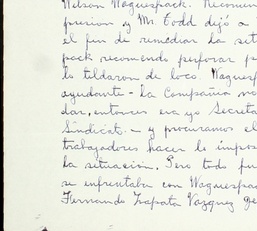 Wilson Waguespack. Recomen
presion y Mr. Todd dejó a
el fin de remediar la sit
pack recomendo perforar p
lo tildaron de loco. Waguesp
ayudante - la Compañia no
dar, entonces era yo Secreta
Sindicat. - y procuramos el
trabajadores hacer le impos
la situacion. Pero todo fu
se enfrentaba con Waguespa
Hernando Zapata Vazquez Ge